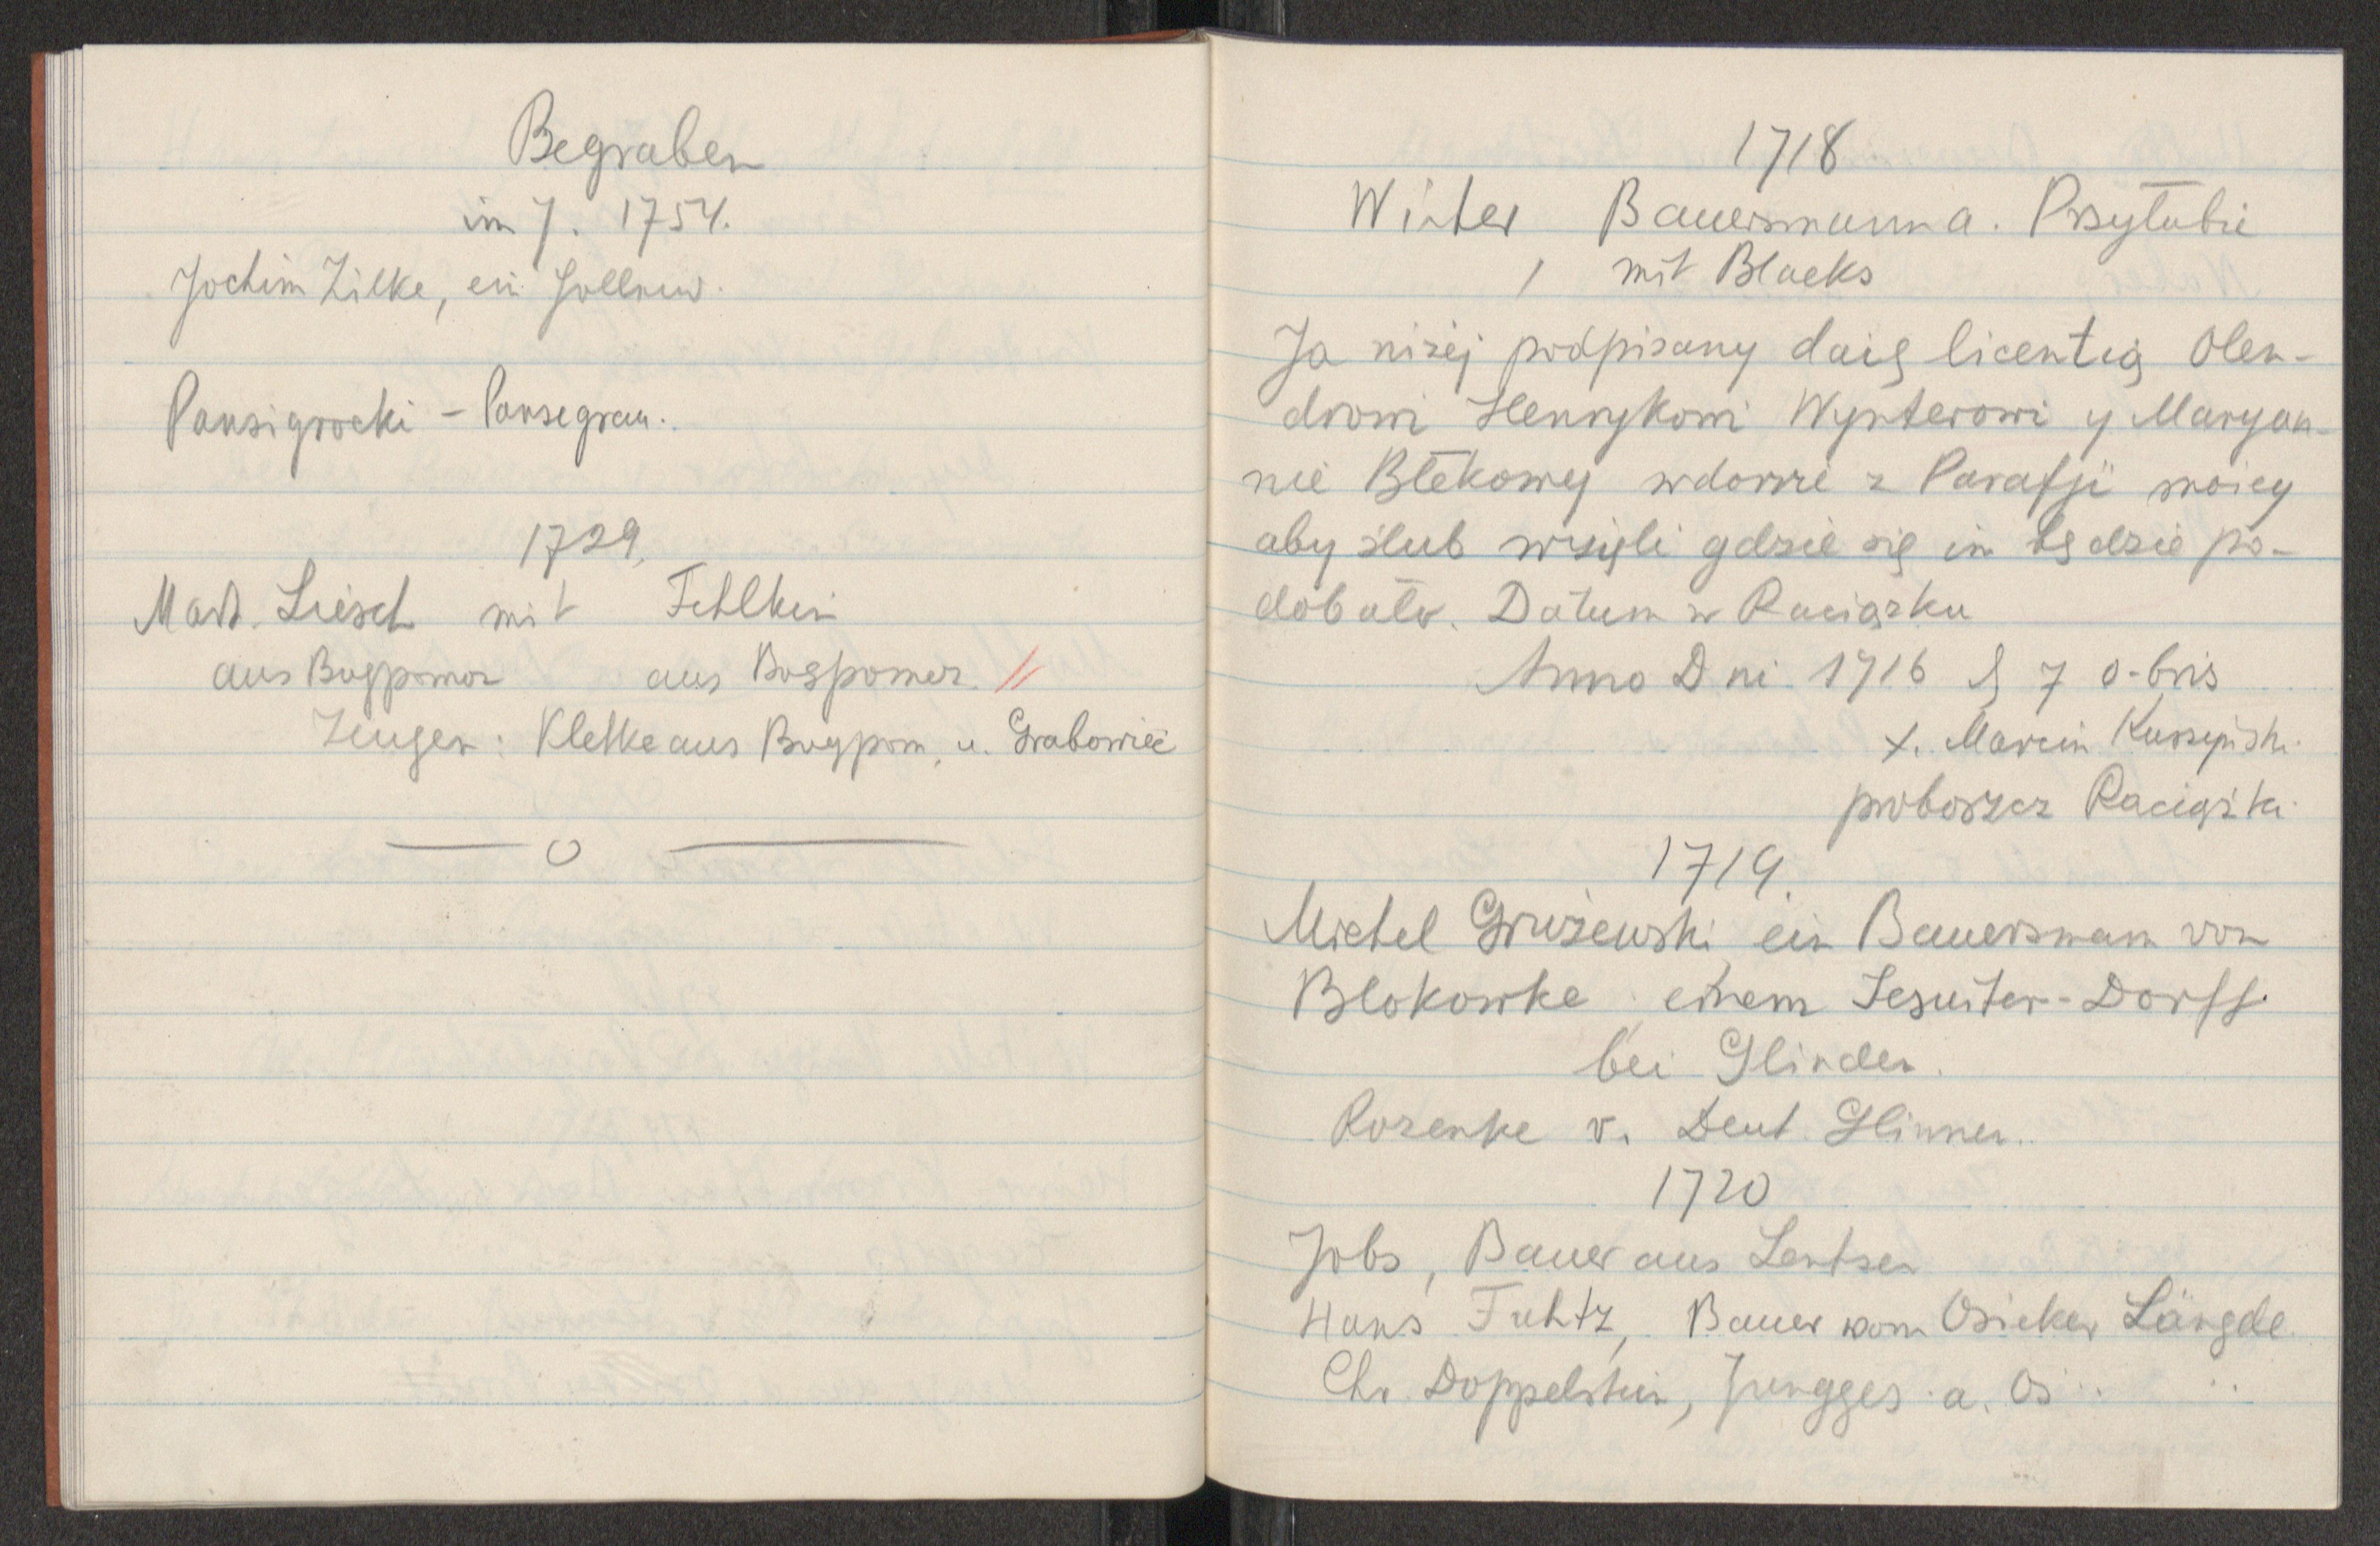 Begraben
im J. 1754.
Jochim Zilke, ein
Pansigrocki - Pansegrau.
1729.
Mart. Liesch mit Fehlkin
aus Bogpomoz aus Bogpomoz. //
Zeugen: Kletke aus Bogpom, u. Grabowiec
— o —
1718
Winter Bauersmann a. Przyłubie
mit Blaeks
Ja niżej podpisany daię licentią Olen-
drowi Henrykowi Wynterowi y Maryan-
nie Blekowey wdowie z Parafji moiey
aby ślub wzięli gdzie się im będzie po-
dobało. Datum w Raciążku
Anno Dni 1716 d 7 0-bris
x. Marcin
proboszcz Raciążki
1719.
Michel Grużewski, ein Bauersmann von
Blokowke einem Jesuiter-Dorff
bei Glinden.
Rozenke v. Deut. Glinnen.
1720
Jobs, Bauer aus Lentzen
Hans Fuhtz, Bauer vom Osieker Längde
Chr. Doppelstein, Jungges. a. Os..